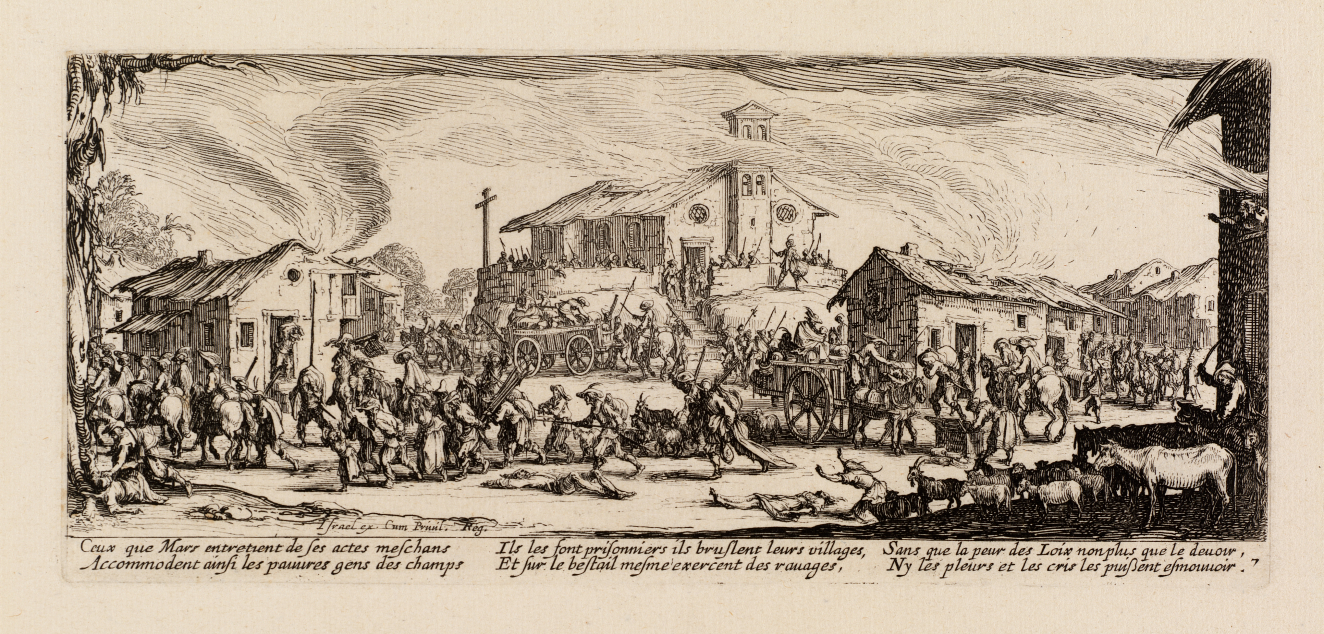 Israel ex. Cum Priuil. Reg.
Ceux que Mars entretient de ses actes meschans
Accommodent ainsi les pauures gens des champs
Ils les font prisonniers ils bruslent leurs villages,
Et sur le bestail mesme exercent des rauages,
Sans que la peur des Loix non plus que le deuoir,
Ny les pleurs et les cris les puissent esmouuoir. 7